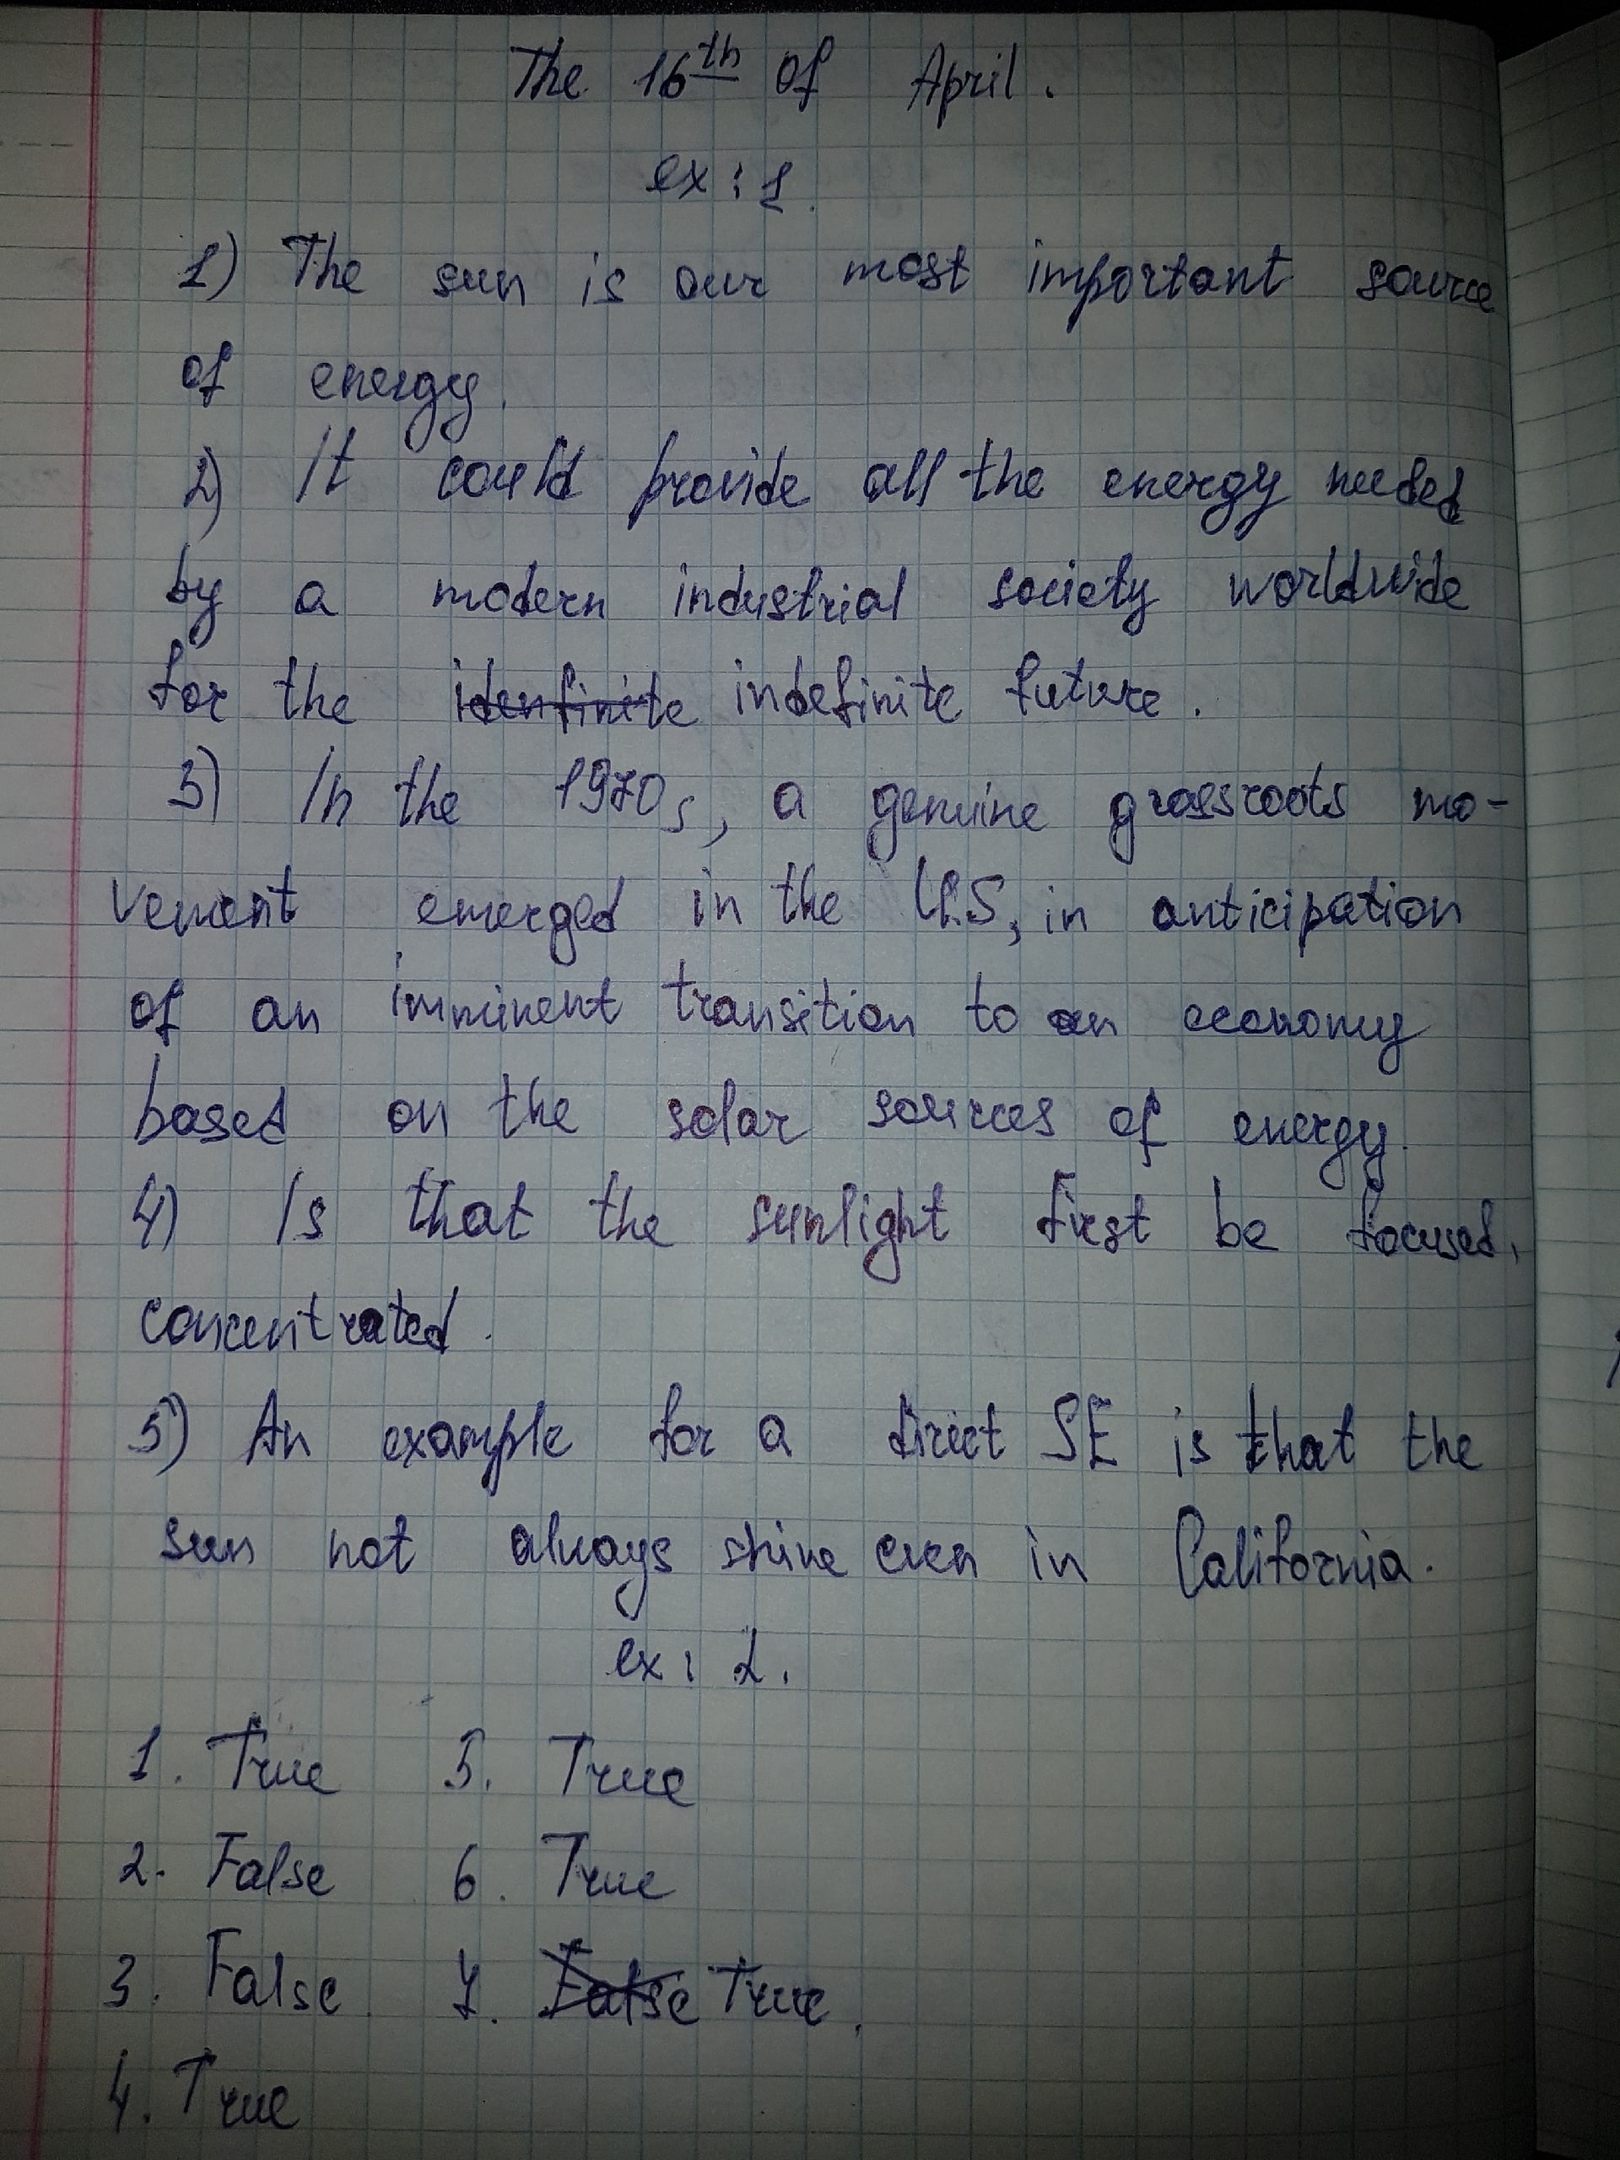 The 16th of April.
ex: 1.
1) The sun is our most important source
of energy.
2) It could provide all the energy needed
by a modern industrial society worldwide
for the idenfinite indefinite future.
3) In the 1970s, a genuine grassroots mo-
vement emerged in the U.S, in anticipation
of an imminent transition to an economy
based on the solar sources of energy.
4) Is that the sunlight first be focused,
concentrated.
5) An example for a direct SE is that the
sun not always shine even in California.
ex: 2.
1. True 5. True
2. False 6. True
3. False. 7. False True.
4. True